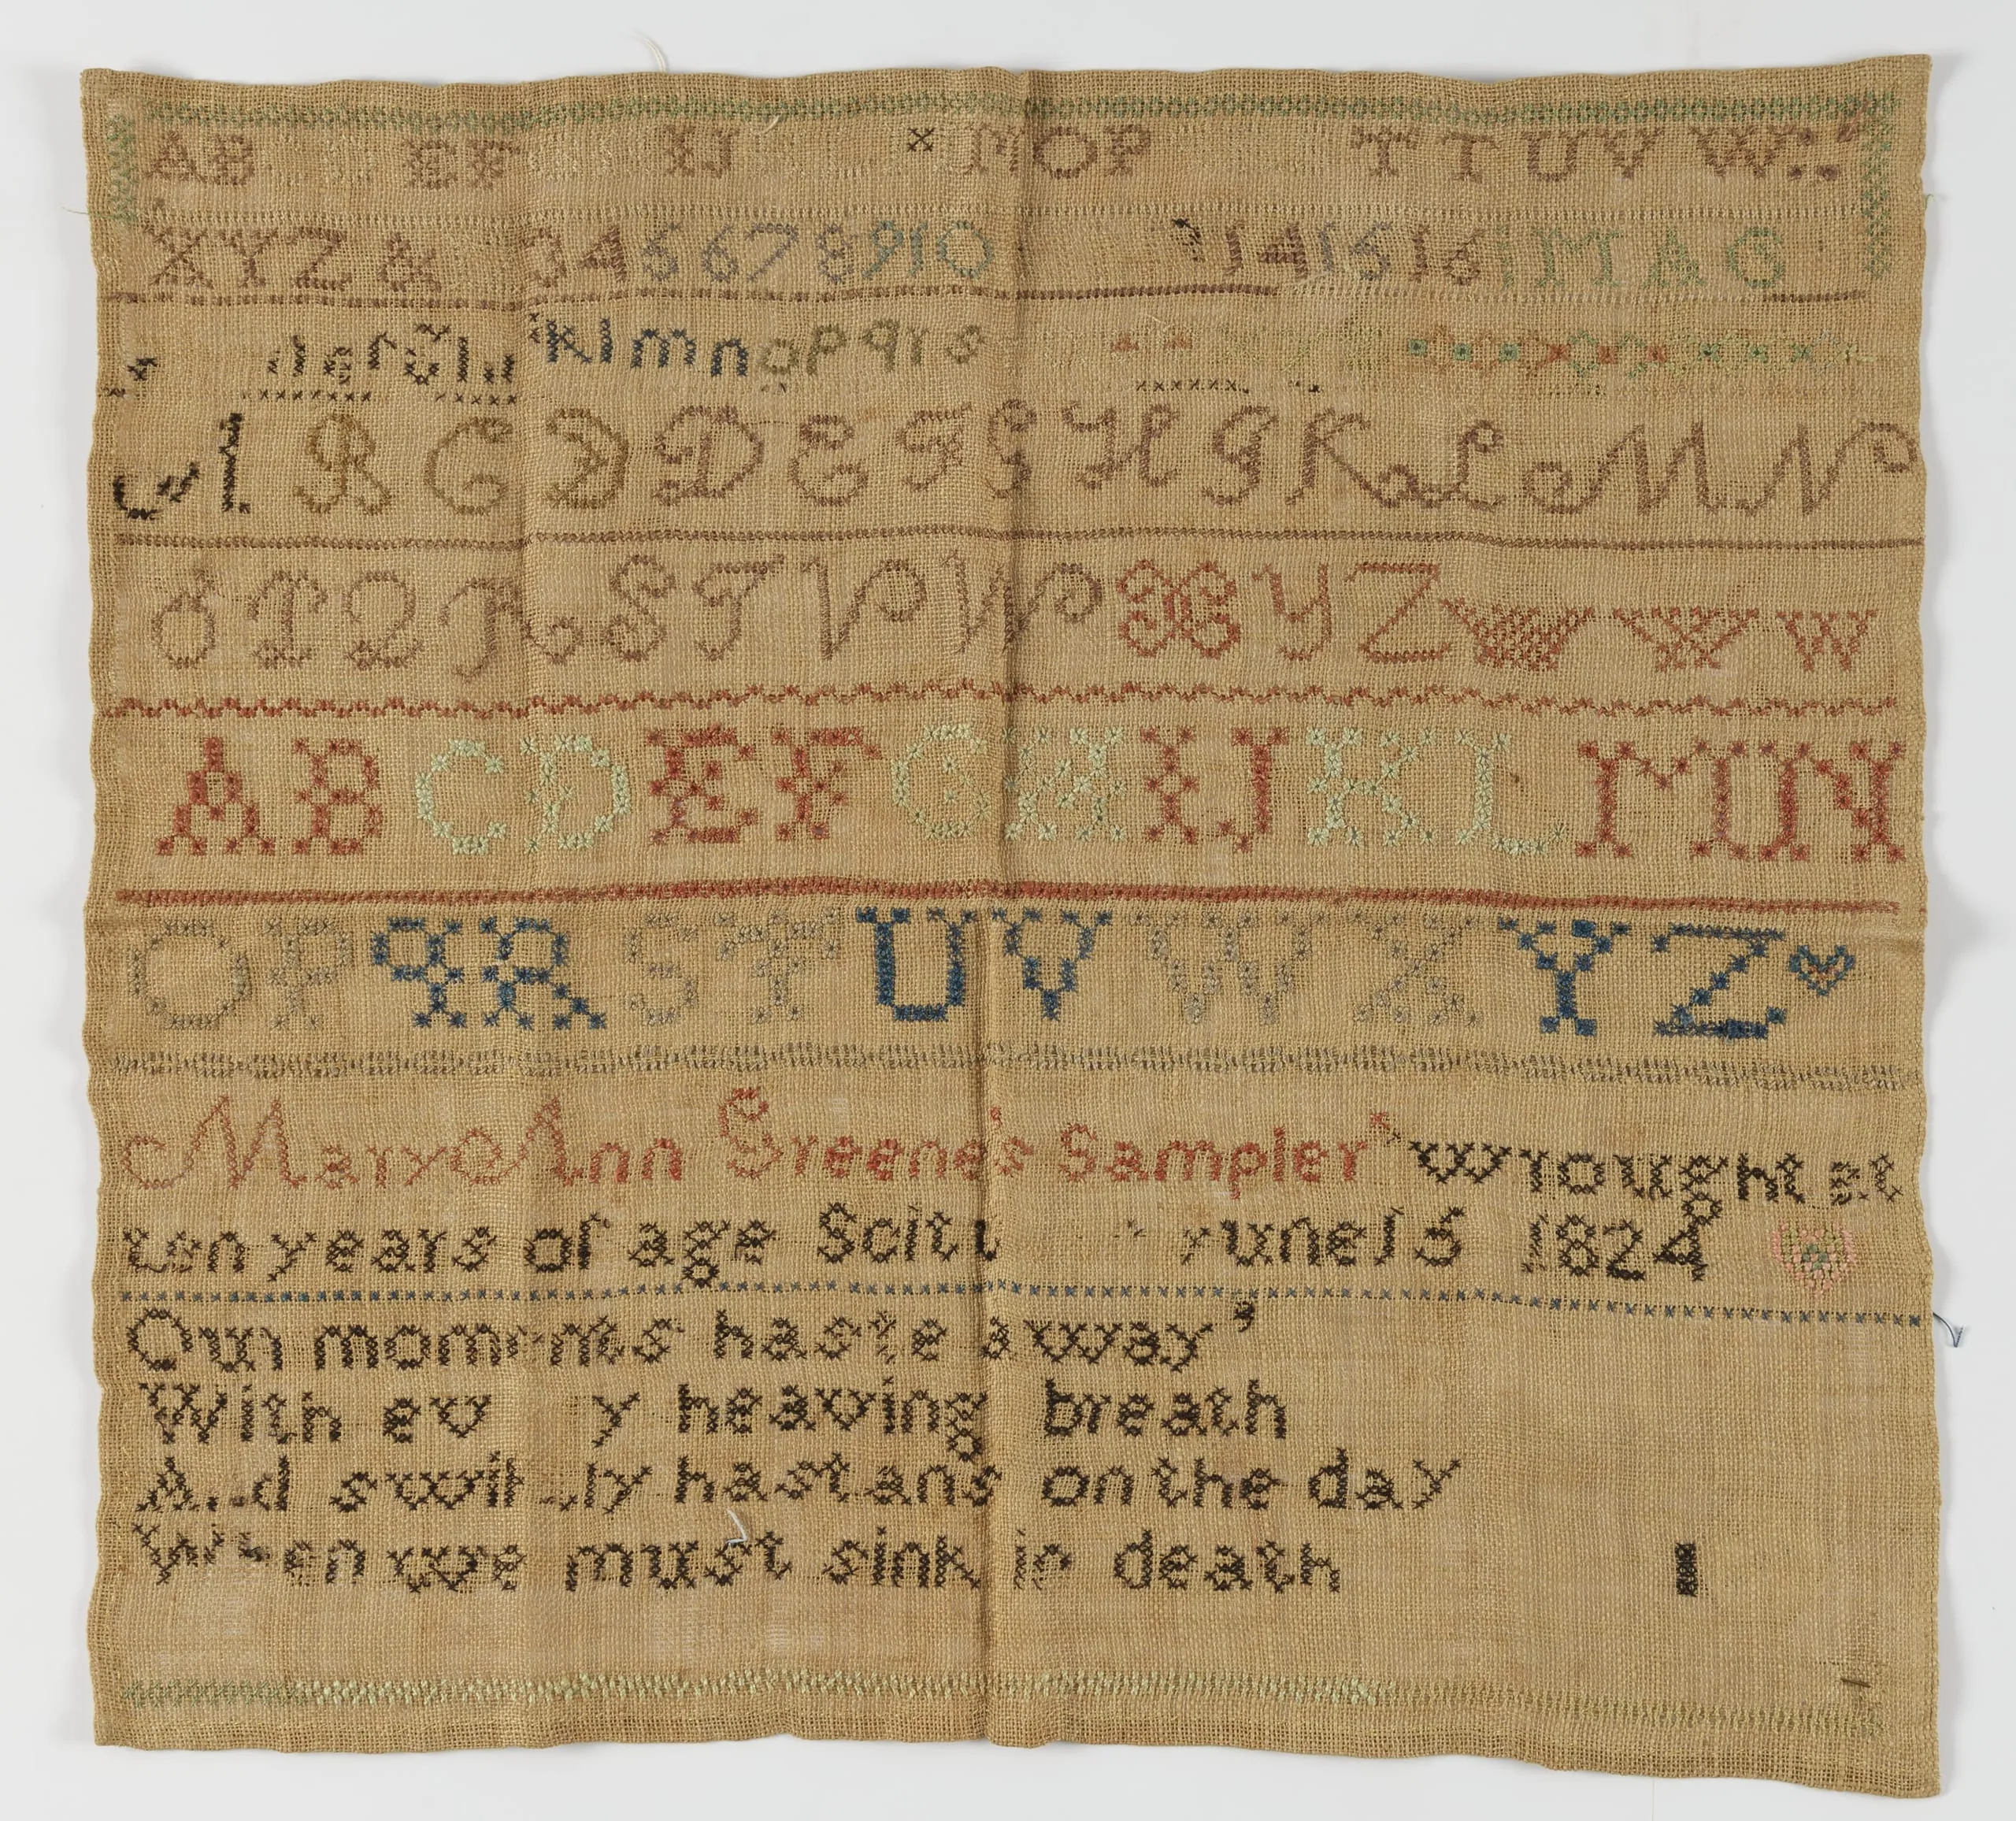 AB EF IJ M O P T T U V W
X Y Z & 3 4 5 6 7 8 9 10 14 15 16 MAG
k l m n o p q r s
A B C D D E F G H G K L M N
O P Q R S T V W X Y Z W W W
A B C D E F G H I J K L M N
O P Q R S T U V W X Y Z
Mary Ann Greene's Sampler wrought at
ten years of age Scitu June 15 1824
Our moments haste away
With ev y heaving breath
And swiftly hastans on the day
When we must sink in death